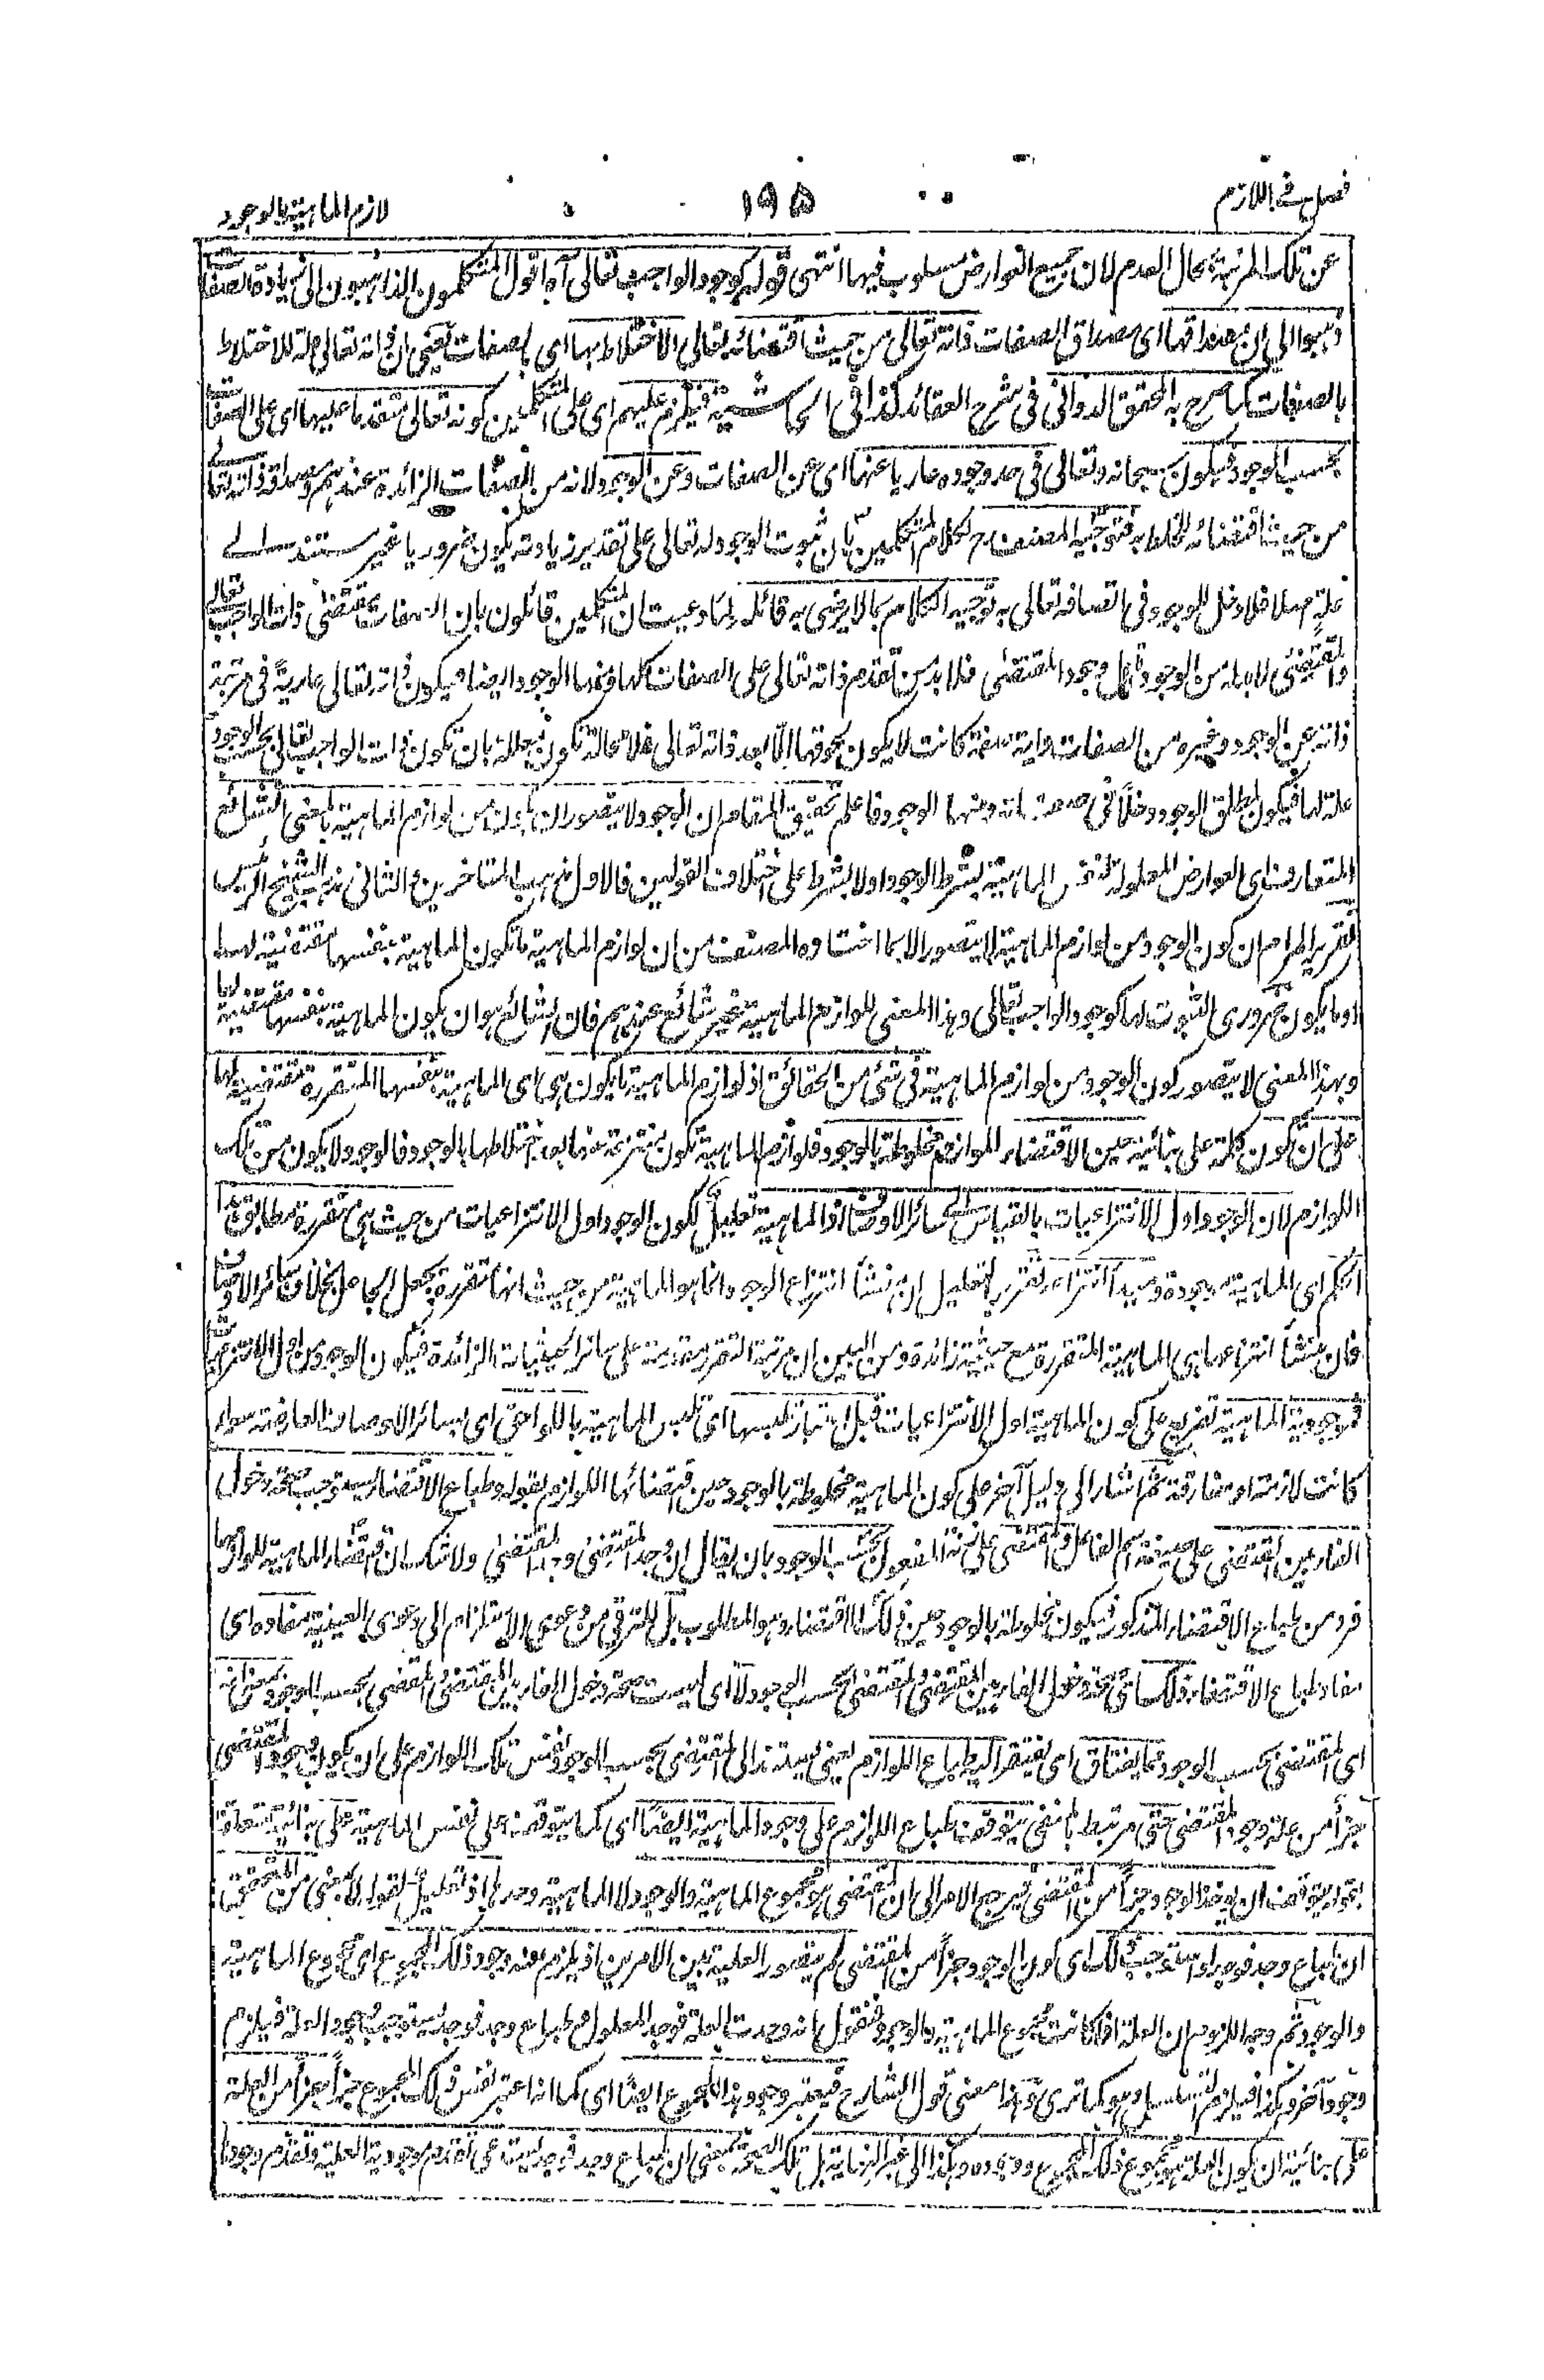 فصل في اللازم ۱۹۵ لازم الماهية بالوجود
عن تلك المرتبة بحال العدم لان جميع العوارض مسلوب فيها انتهى قوله كوجود الواجب تعالى آه اقول المتكلمون الذاهبون الى زيادة الصفات
ذهبوا الى ان مصداقها اى مصداق الصفات ذاته تعالى من حيث اقتضائه تعالى الاختلاط بها اى بالصفات يعني ان ذاته تعالى علة للاختلاط
بالصفات كما صرح به المحقق الدواني في شرح العقائد كذا في الحاشية فيلزم عليهم اى على المتكلمين كونه تعالى متقدما عليها اى على الصفات
بحسب الوجود فيكون سبحانه وتعالى في حد وجوده عاريا عنها اى عن الصفات وعن الوجود لانه من الصفات الزائدة عندهم ومصداقه ذاته تعالى
من حيث اقتضائه للخلط به فتوجيه المصنف رح لكلام المتكلمين بان ثبوت الوجود له تعالى على تقدير زيادته يكون ضروريا غير مستند الى
علة اصلا فلا دخل للوجود في اتصافه تعالى به توجيه الكلام بما لا يرضى به قائله لما وعيت ان المتكلمين قائلون بان الصفات مقتضى ذات الواجب تعالى
والمقتضي لابد له من الوجود قبل وجود المقتضى فلا بد من تقدم ذاته تعالى على الصفات كلها ومنها الوجود ايضا فيكون ذاته تعالى عارية في مرتبة
ذاته عن الوجود وغيره من الصفات واية صفة كانت لا يكون لحوقها الا بعد ذاته تعالى فلا محالة تكون معللة بان تكون ذات الواجب تعالى بحسب الوجود
علة لها فيكون لمطلق الوجود دخلا في ومنها الوجود فاعلم تحقيق المقام ان الوجود لا يتصور ان يكون من لوازم الماهية بالمعنى الشائع
المتعارف اى العوارض المعلولة لنفس الماهية بشرط الوجود اولا بشرط على اختلاف القولين فالاول مذهب المتاخرين والثاني مذهب الشيخ الرئيس
تقرير المرام ان كون الوجود من لوازم الماهية لا يتصور الا بما اختاره المصنف من ان لوازم الماهية ما تكون الماهية بنفسها مقتضية لها
او ما يكون ضروري الثبوت لها كوجود الواجب تعالى وهذا المعنى للوازم الماهية غير شائع عندهم فان الشائع هو ان يكون الماهية بنفسها مقتضية لها
وبهذا المعنى لا يتصور كون الوجود من لوازم الماهية في شئ من الحقائق اذ لوازم الماهية ما يكون هي اى الماهية بنفسها المتقررة مقتضية لها
على ان تكون كلمة على بنائية حين الاقتضاء للوازم مخلوطة بالوجود فلوازم الماهية تكون منتزعة عنها بعد اختلاطها بالوجود فالوجود لا يكون من تلك
اللوازم لان الوجود اول الانتزاعيات بالقياس الى سائر الاوصاف اذ الماهية تعليل لكون الوجود اول الانتزاعيات من حيث هي متقررة مطابق هذا
الحكم اى الماهية موجودة ومبدأ انتزاعه تقرير التعليل ان منشأ انتزاع الوجود انما هو الماهية من حيث انها متقررة بجعل الجاعل بخلاف سائر الاوصاف
فان منشأ انتزاعها هي الماهية المتقررة مع حيثية زائدة ومن البين ان مرتبة التقرر متقدمة على سائر الحيثيات الزائدة فيكون الوجود من اول الانتزاعيات
فموجودية الماهية تفريع على كون الماهية اول الانتزاعيات قبل اعتبار تلبسها اى تلبس الماهية باللواحق اى بسائر الاوصاف العارضة سواء
كانت لازمة او مفارقة ثم اشار الى دليل آخر على كون الماهية مخلوطة بالوجود حين اقتضائها اللوازم بقوله وطباع الاقتضاء يستوجب صحة دخول
الفاء بين المقتضي على صيغة اسم الفاعل والمقتضى على زنة المفعول بحسب الوجود بان يقال ان وجد المقتضي وجد المقتضى ولا شك ان اقتضاء الماهية للوازمها
فرد من طباع الاقتضاء المذكور فيكون مخلوطة بالوجود حين ذلك الاقتضاء وهو المطلوب بل للترقي من دعوى الاستلزام الى دعوى العينية مفاده اى
مفاد طباع الاقتضاء ذلك اى صحة دخول الفاء بين المقتضي والمقتضى بحسب الوجود لا اى ليست صحة دخول الفاء بين المقتضي والمقتضى بحسب الوجود
اى المقتضي بحسب الوجود مما يفتاق اى يفتقر اليه طباع اللوازم يعني يستند الى المقتضي بحسب الوجود نفس تلك اللوازم على ان يكون وجود المقتضي
جزأ من علة وجود المقتضى حتى مرتبط بالنفي يتوقف طباع اللوازم على وجود الماهية ايضا اى كما يتوقف على نفس الماهية على بنائية متعلقة
بقوله يتوقف ان يوخذ الوجود جزأ من المقتضي فيرجع الامر الى ان المقتضي هو مجموع الماهية والوجود لا الماهية وحدها اذ تعليل لقوله لا يعني من المتحقق
ان طباع وجد فوجد لو استوجب ذلك اى كون الوجود جزأ من المقتضي لم يتصور العلية بين الامرين اذ يلزم منه وجود ذلك المجموع اى مجموع الماهية
والوجود ثم وجه اللزوم ان العلة اذا كانت مجموع الماهية والوجود فنقول انه وجدت العلة فوجد المعلول وطباع وجد فوجد يستوجب وجود العلة فيلزم
وجود آخر وهكذا فيلزم التسلسل وهو كما ترى وهذا معنى قول الشارح فيعتبر وجود هذا المجموع ايضا اى كما انه اعتبر نفس ذلك المجموع جزأ من العلة
على بنائية ان يكون العلة مجموع ذلك المجموع ووجوده وهكذا الى غير النهاية بل تلك الصحة بمعنى ان طباع وجد فوجد ليست على تقدم موجودية العلية وتقدم وجود